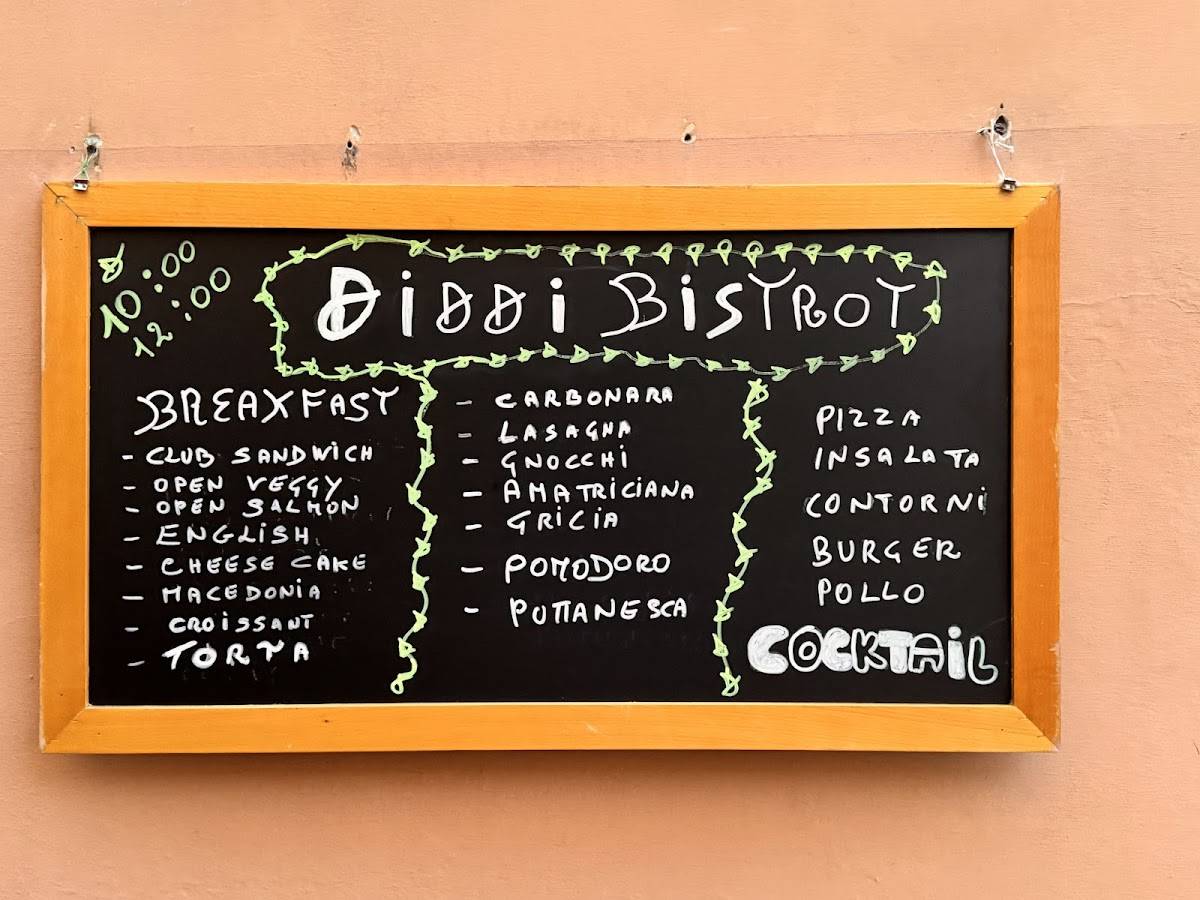 10:00
12:00
DiDDi BiSTROT
BREAKFAST
- CLUB SANDWICH
- OPEN VEGGY
- OPEN SALMON
- ENGLISH
- CHEESE CAKE
- MACEDONIA
- CROISSANT
- TORTA
- CARBONARA
- LASAGNA
- GNOCCHI
- AMATRICIANA
- GRICIA
- POMODORO
- PUTTANESCA
PIZZA
INSALATA
CONTORNI
BURGER
POLLO
COCKTAIL